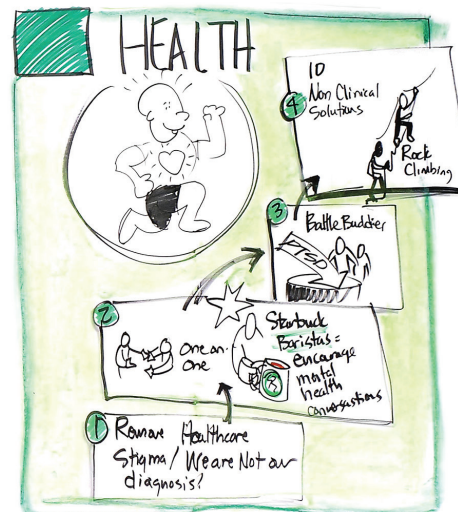 HEALTH
4
ID
Non Clinical
Solutions
Rock
Climbing
3
Battle Buddies
PTSD
2
One on
One
Starbuck
Baristas =
encourage
mental
health
conversastions
1
Remove Healthcare
Stigma / We are Not our
diagnosis!